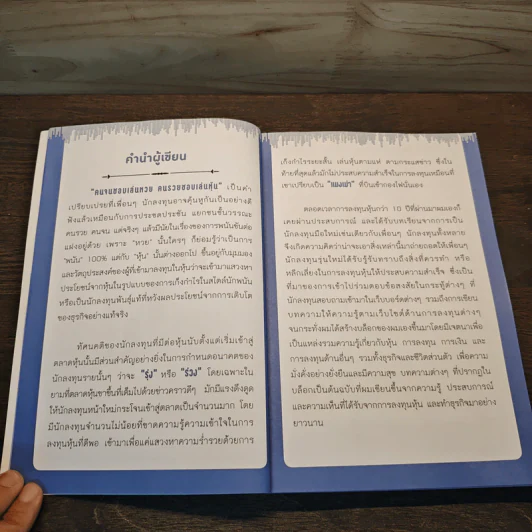 คำนำผู้เขียน
"คนจนชอบเล่นหวย คนรวยชอบเล่นหุ้น" เป็นคำ
เปรียบเปรยที่เพื่อนๆ นักลงทุนอาจคุ้นหูกันเป็นอย่างดี
ฟังแล้วเหมือนกับการประชดประชัน แยกชนชั้นวรรณะ
คนรวย คนจน แต่จริงๆ แล้วมีนัยในเรื่องของการพนันขันต่อ
แฝงอยู่ด้วย เพราะ "หวย" นั้นใครๆ ก็ย่อมรู้ว่าเป็นการ
"พนัน" 100% แต่กับ "หุ้น" นั้นต่างออกไป ขึ้นอยู่กับมุมมอง
และวัตถุประสงค์ของผู้ที่เข้ามาลงทุนในหุ้นว่าจะเข้ามาแสวงหา
ประโยชน์จากหุ้นในรูปแบบของการเก็งกำไรในสไตล์นักพนัน
หรือเป็นนักลงทุนพันธุ์แท้ที่หวังผลประโยชน์จากการเติบโต
ของธุรกิจอย่างแท้จริง
ทัศนคติของนักลงทุนที่มีต่อหุ้นนับตั้งแต่เริ่มเข้าสู่
ตลาดหุ้นนั้นมีส่วนสำคัญอย่างยิ่งในการกำหนดอนาคตของ
นักลงทุนรายนั้นๆ ว่าจะ "รุ่ง" หรือ "ร่วง" โดยเฉพาะใน
ยามที่ตลาดหุ้นขาขึ้นที่เต็มไปด้วยข่าวคราวดีๆ มักมีแรงดึงดูด
ให้นักลงทุนหน้าใหม่กระโจนเข้าสู่ตลาดเป็นจำนวนมาก โดย
มีนักลงทุนจำนวนไม่น้อยที่ขาดความรู้ความเข้าใจในการ
ลงทุนหุ้นที่ดีพอ เข้ามาเพื่อแค่แสวงหาความร่ำรวยด้วยการ
เก็งกำไรระยะสั้น เล่นหุ้นตามแห่ ตามกระแสข่าว ซึ่งใน
ท้ายที่สุดแล้วมักไม่ประสบความสำเร็จในการลงทุนเหมือนที่
เขาเปรียบเป็น "แมงเม่า" ที่บินเข้ากองไฟนั่นเอง
ตลอดเวลาการลงทุนหุ้นกว่า 10 ปีที่ผ่านมาผมเองก็
เคยผ่านประสบการณ์ และได้รับบทเรียนจากการเป็น
นักลงทุนมือใหม่เช่นเดียวกับเพื่อนๆ นักลงทุนทั้งหลาย
จึงเกิดความคิดว่าน่าจะเอาสิ่งเหล่านี้มาถ่ายทอดให้เพื่อนๆ
นักลงทุนรุ่นใหม่ได้รับรู้รับทราบถึงสิ่งที่ควรทำ หรือ
หลีกเลี่ยงในการลงทุนหุ้นให้ประสบความสำเร็จ ซึ่งเป็น
ที่มาของการเข้าไปร่วมตอบข้อสงสัยในกระทู้ต่างๆ ที่
นักลงทุนสอบถามเข้ามาในเว็บบอร์ดต่างๆ รวมถึงการเขียน
บทความให้ความรู้ตามเว็บไซต์ด้านการลงทุนต่างๆ
จนกระทั่งผมได้สร้างบล็อกของผมเองขึ้นมาโดยมีเจตนาเพื่อ
เป็นแหล่งรวมความรู้เกี่ยวกับหุ้น การลงทุน การเงิน และ
การลงทุนด้านอื่นๆ รวมทั้งธุรกิจและชีวิตส่วนตัว เพื่อความ
มั่งคั่งอย่างยั่งยืนและมีความสุข บทความต่างๆ ที่ปรากฏใน
บล็อกเป็นต้นฉบับที่ผมเขียนขึ้นจากความรู้ ประสบการณ์
และความเห็นที่ได้รับจากการลงทุนหุ้น และทำธุรกิจมาอย่าง
ยาวนาน